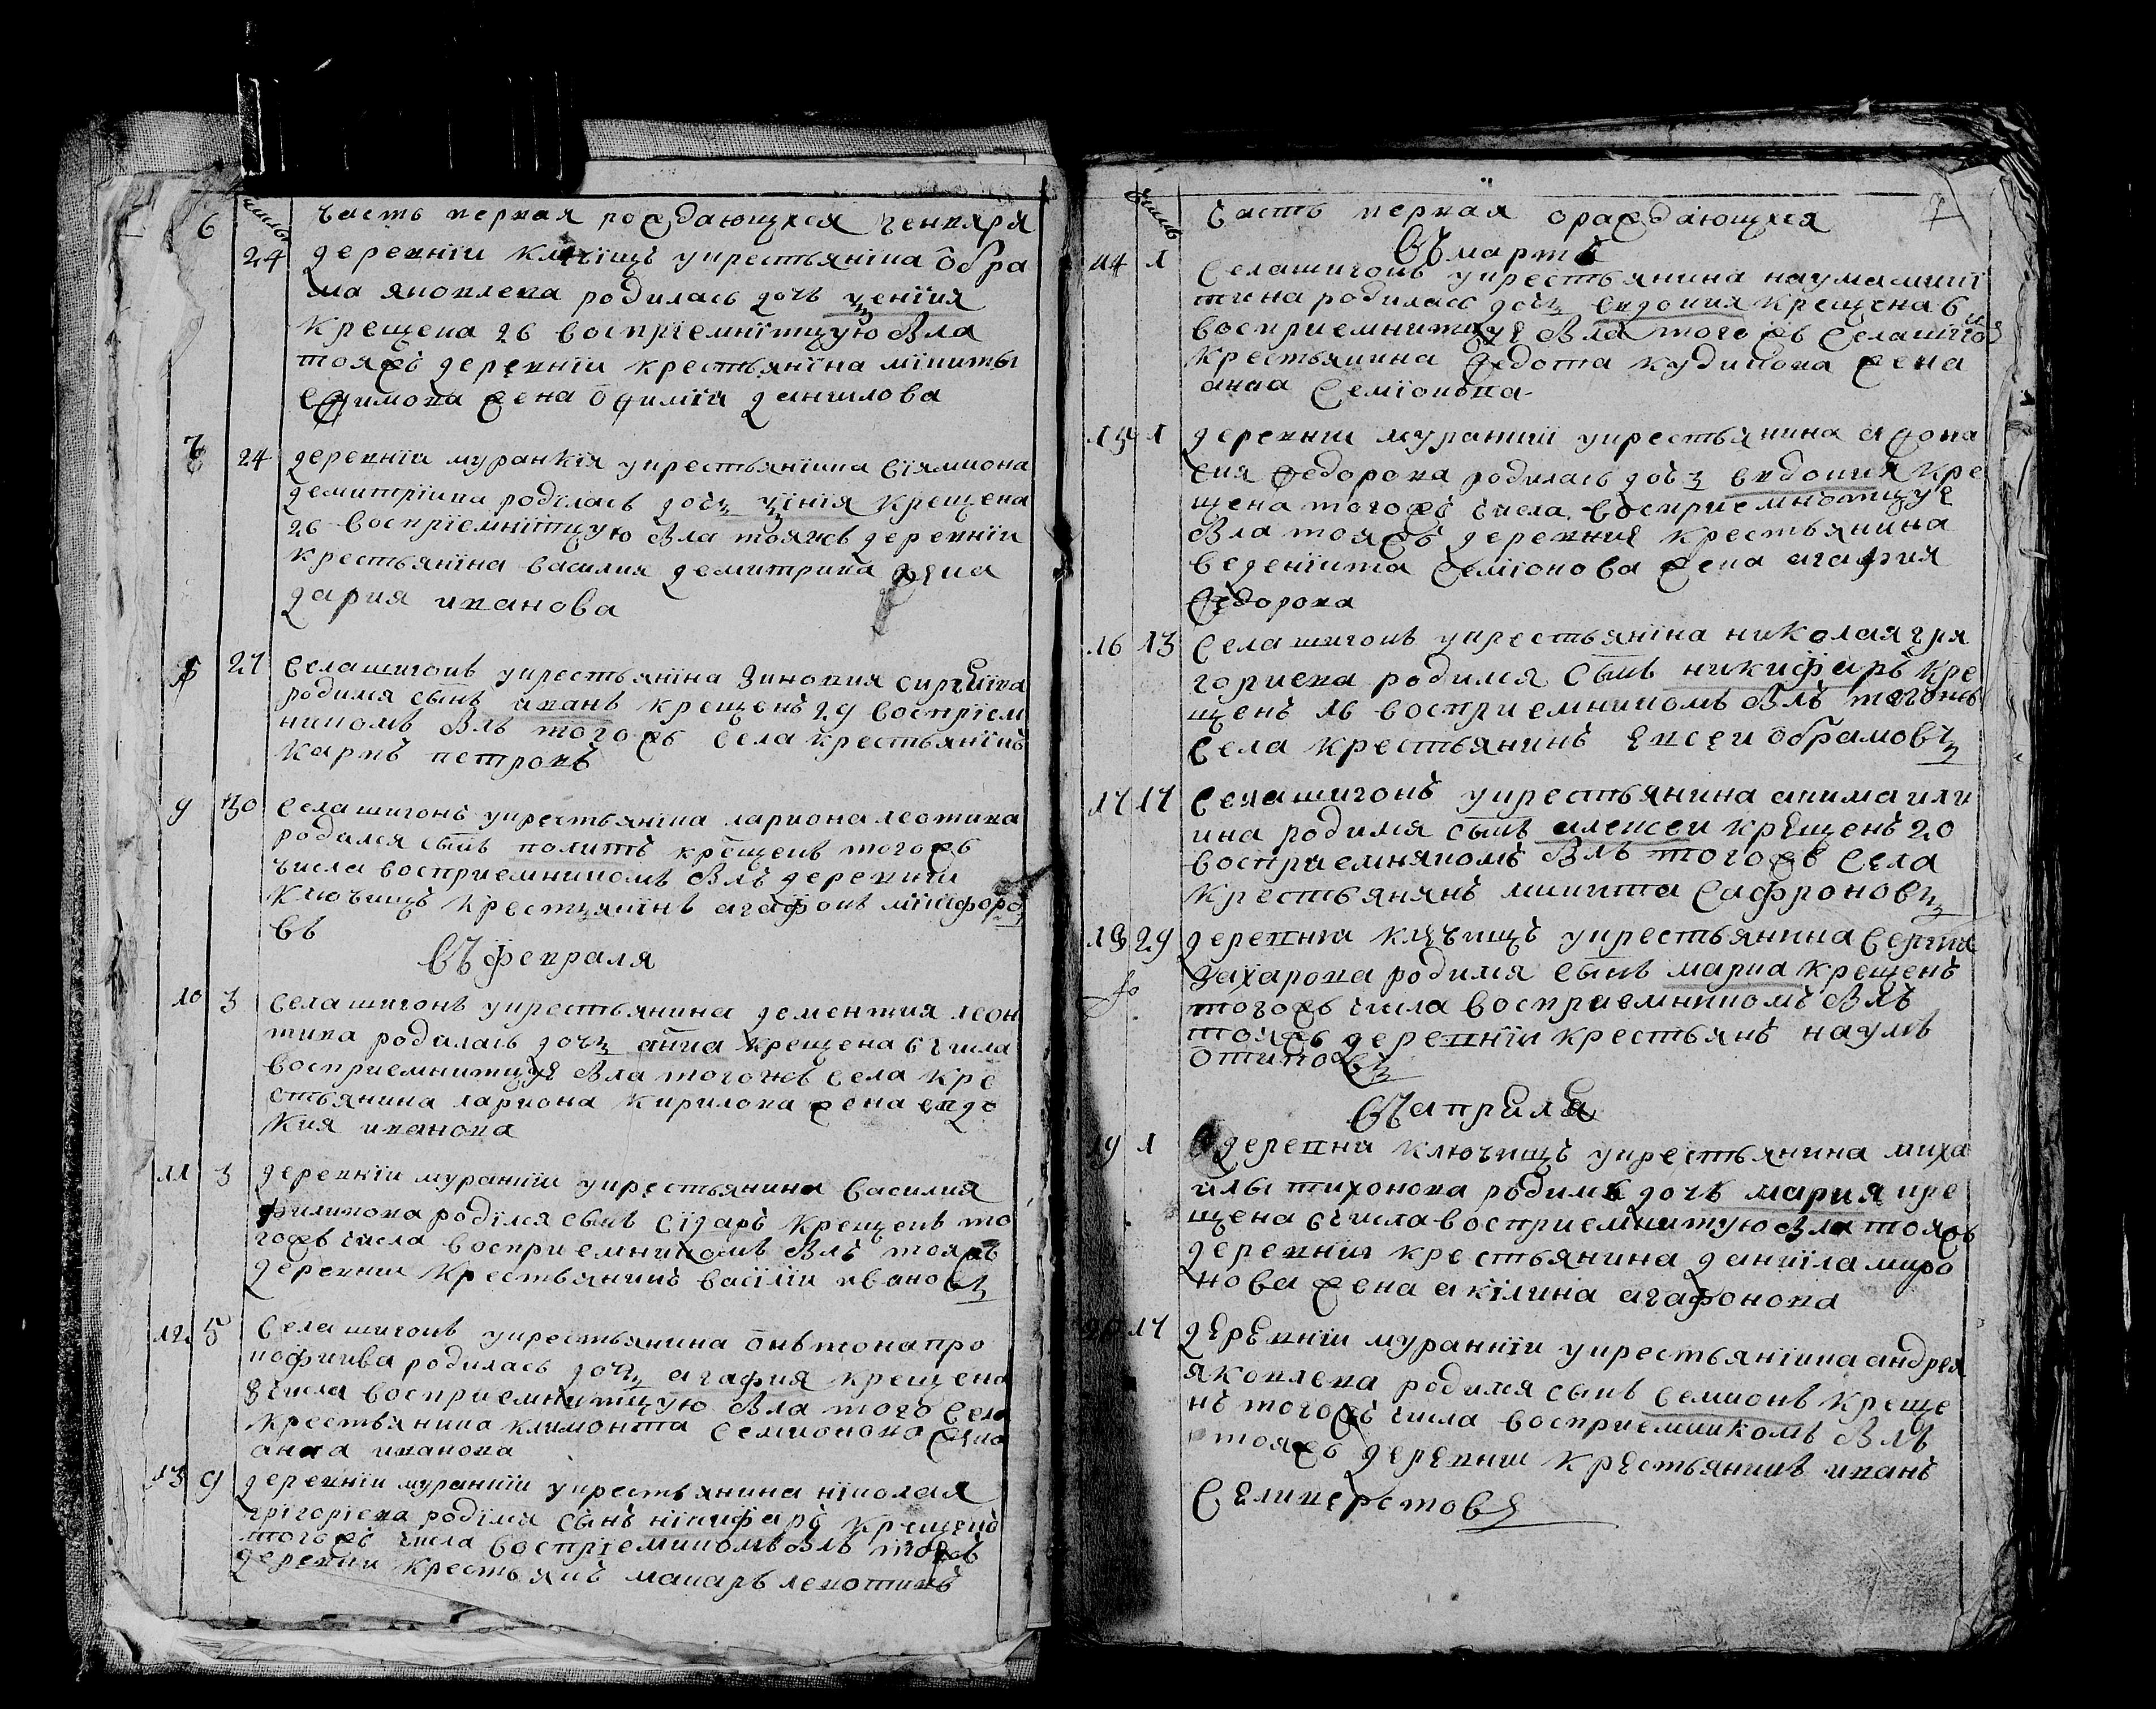 числы
часть первая рождающихся генваря
6 24 деревнїи ключїищъ укрестьянїна обра
ма яковлева родилась дочь ѯенїия
крещена 26 восприемнїтцую была
тояжъ деревнїи крестьянїна мїниты
ефимова жена офимїя данилова
7 24 деревнїи муранкїя укрестьянїина сїямиона
демитрїива родїлась дочъ ѯїнїя крещена
26 восприемнїтцую была тояжъ деревнїи
крестьянїна василия демитрива жена
дария иванова
8 27 села шигонъ укрестьянїна зиновия сиргїива
родился сынъ иванъ крещенъ 29 восприем
никомъ былъ тогожъ села крестьянїнъ
карпъ петровъ
9 30 села шигонъ укрестьянїна лариона леотива
родился сынъ политъ крещенъ тогожъ
числа восприемникомъ былъ деревнїи
ключищъ крестьянїнъ агафонъ микифоро
въ
въ февраля
10 3 села шигонъ укрестьянина дементия леон
тива родилась дочъ анна крещена 6 числа
восприемнитцуя была тогожъ села кре
стьянина лариона кирилова жена евдо
кия иванова
11 3 деревнїи муранкїи укрестьянина василия
филипова родїлся сынъ сїдаръ крещенъ то
гожъ числа восприемникомъ былъ тояжъ
деревнии крестьянинъ василїи ивановъ
12 5 села шигонъ укрестьянина онътона про
кофиива родилась дочъ агафия крещена
8 числа восприемнитцую была того села
крестьянина климонта семионова жена
анна иванова
13 9 деревнїи муранкїи укрестьянина нїколая
грїгорїева родїлся сынъ нїкифаръ крещенъ
тогожъ числа восприемникомъ былъ тояжъ
деревнии крестьянъ макаръ левонтивъ
числъ
часть первая ораждающихся 7
въ мартѣ
14 1 села шигонъ укрестьянина наума микї
тина родилась дочъ евдокия крещена 6
восприемнитцуе была тогожъ села шиго
крестьянина федота кудинова жена
анна семїонова
15 1 деревнїи муранкїи укрестьянина афона
сия федорова родилась дочъ евдокия кре
щена тогожъ числа восприемнитцуе
была тояжъ деревния крестьянина
веденїкта семїонова жена агафия
федорова
16 13 села шигонъ укрестьянїна николая гри
гориева родился сынъ никифаръ кре
щенъ 16 восприемникомъ былъ тогожъ
села крестьянинъ евсеи обрамовъ
17 17 села шигонъ укрестьянина акима или
ина родился сынъ алексеи крещенъ 20
восприемникомъ былъ тогожъ села
крестьянянъ микита сафроновъ
18 29 деревнии ключищъ укрестьянина сергия
захарова родился сынъ марка крещенъ
тогожъ числа восприемникомъ былъ
тояжъ деревнїи крестьянъ наумъ
въ априля
19 1 деревни ключищъ укрестьянина миха
илы тихонова родилась дочъ мария кре
щена 6 числа восприемнитую была тояжъ
деревнии крестьянина данїила миро
нова жена акїлина агафонова
20 17 деревнїи муранкїи укрестьянїина андрея
яковлева родился сынъ семионъ креще
нъ тогожъ числа восприемником былъ
тояжъ деревнии крестьянинъ иванъ
селиверстовъ